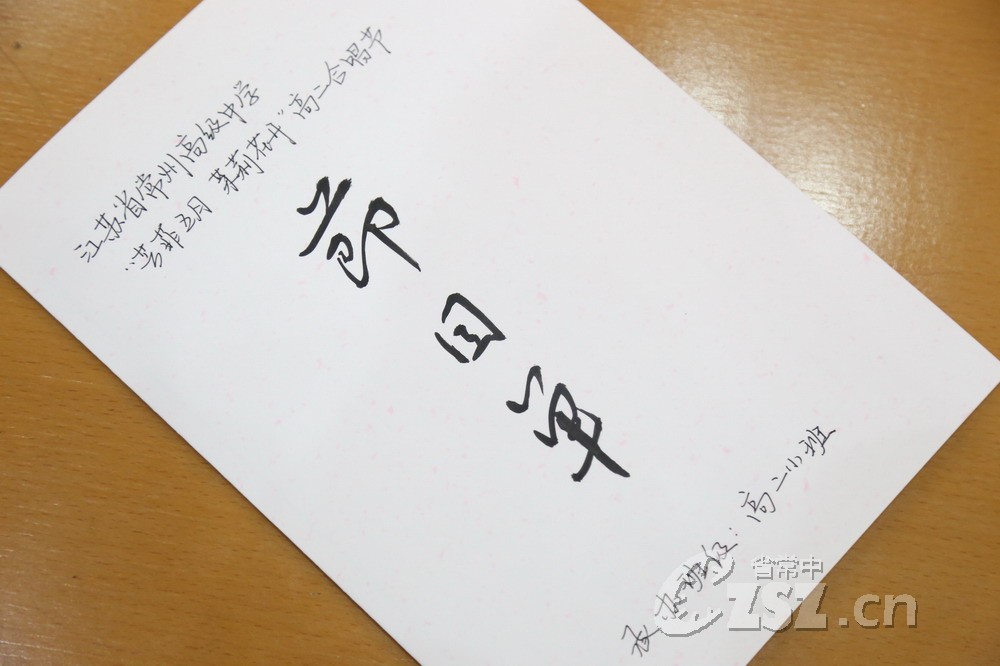 江苏省常州高级中学
"芳菲五月 茉莉花开"高二合唱节
節目单
承办班级：高二小班
省常中
CZSZ.cn